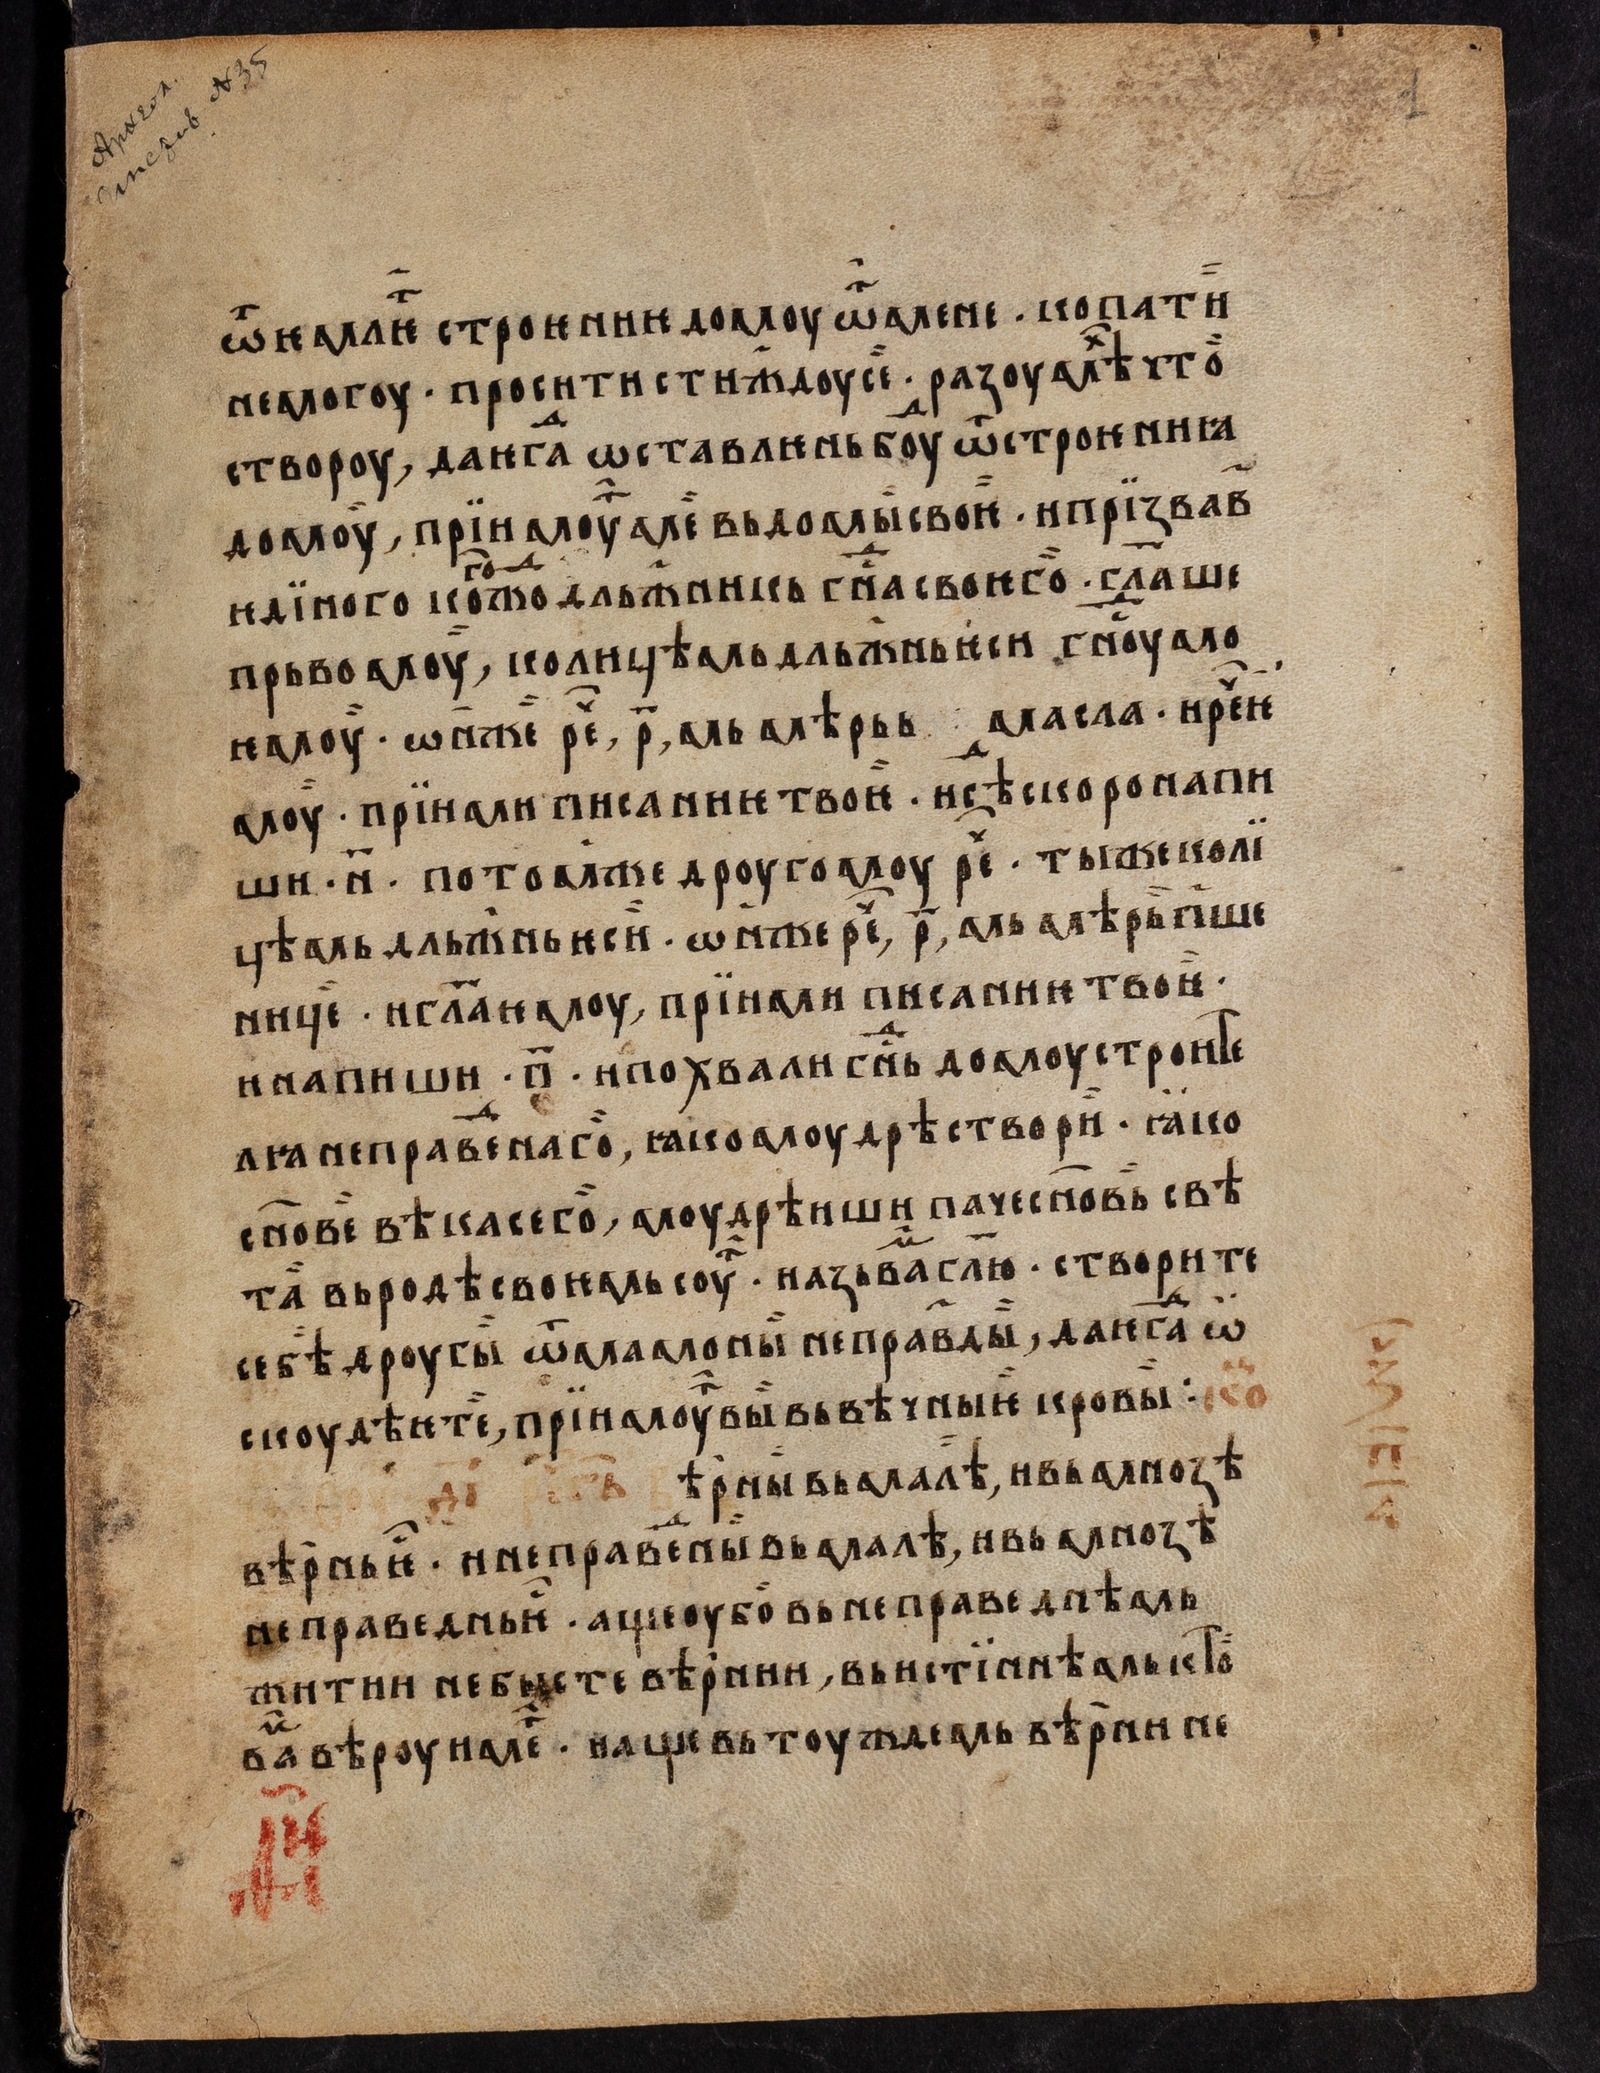 Археол.
№ 35
1
ѿѥмлѥⷮ строѥниѥ домоу ѿмене · копати
немогоу · просити стиждоусе · разоумѣⷯ что
створоу, даѥгⷣа ѡставлѥнь боуⷣ ѿстроѥниꙗ
домоу, прїимоуⷮ ме вьдомы своѥ · ипрїзвав
ѥдїного когоⷤждо дльжникь гнⷭ҇а своѥго · гла҃ше
прьвомоу, колицѣмь дльжньѥси гнⷭ҇оу мо
ѥмоу · ѡнже реⷱ҇, р҃, мь мѣрьь масла · иреⷱ҇ ѥ
моу · прїими писаниѥ твоѥ · исѣⷣ скоро напи
ши · н҃ · потомже дроугомоу реⷱ҇ · тыжеколї
цѣмь дльжньѥси · ѡнже реⷱ҇, р҃, мь мѣрь пше
нице · игла҃ ѥмоу, прїими писаниѥ твоѥ ·
инапиши · п҃ · ипохвали гⷭ҇нь домоустроите
лꙗ неправеⷣнаго, ꙗкомоудрѣ створи · ꙗко
сн҃ове вѣкасего, моудрѣиши пачесн҃овь свѣ
та вьродѣ своѥмь соуⷮ · иазьваⷨ глю҃ · створите
себѣ дроугы ѿмамоны неправды, даѥгⷣа ѡ
скоудѣѥте, прїимоуⷮ вы вьвѣчныѥ кровы :
ѣрны вьмалѣ, ивьмнозѣ
вѣрньѥ · инеправеⷣны вьмалѣ, ивьмнозѣ
неправедньѥ · ащеоубо вьнеправеднѣмь
житии небысте вѣрнии, вьистїннѣмь кто
ваⷨ вѣроу имеⷮ · иаще вьтоуждемь вѣрни не